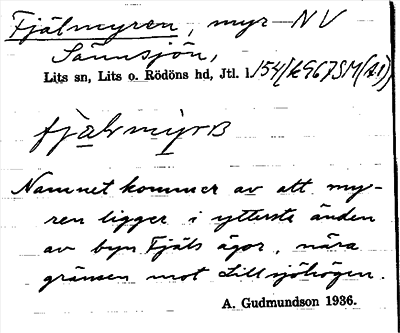 Fjälmyren, myr NV
Sännsjön,
Lits sn, Lits o. Rödöns hd, Jtl. l.
Namnet kommer av att my-
ren ligger i ytterste änden
av byn Fjäls ägor, nära
gränsen mot Lillsjöhögen.
A. Gudmundson 1936.